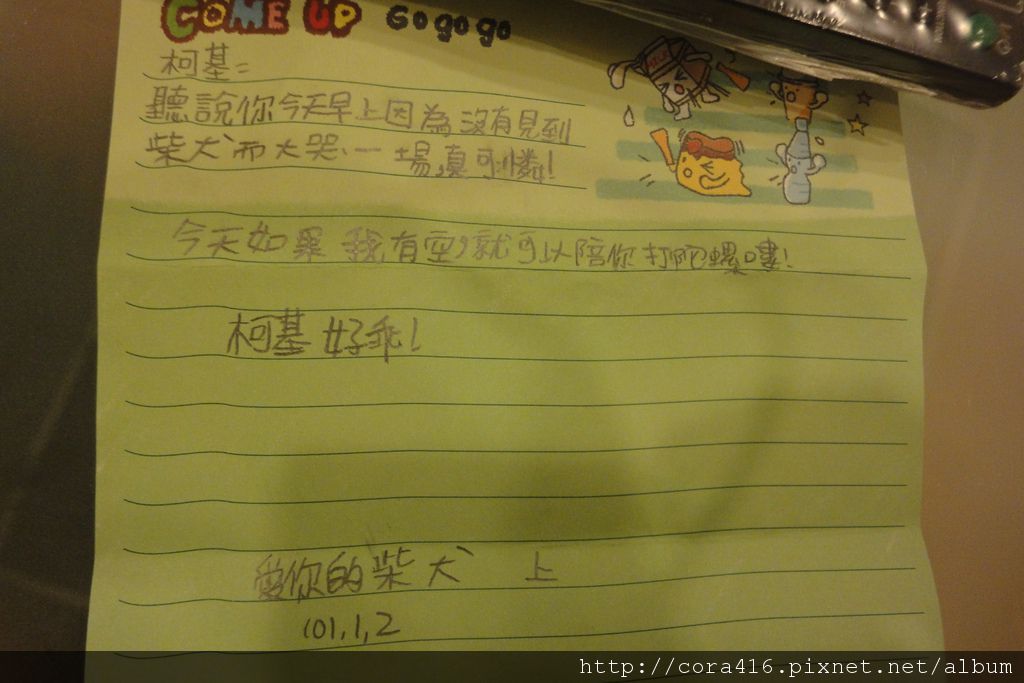 COME UP GO go go
柯基:
聽說你今天早上因為沒有見到
柴犬而大哭一場,真可憐!
今天如果我有空,就可以陪你打陀螺嘍!
柯基好乖!
愛你的柴犬 上
101,1,2
http://cora416.pixnet.net/album